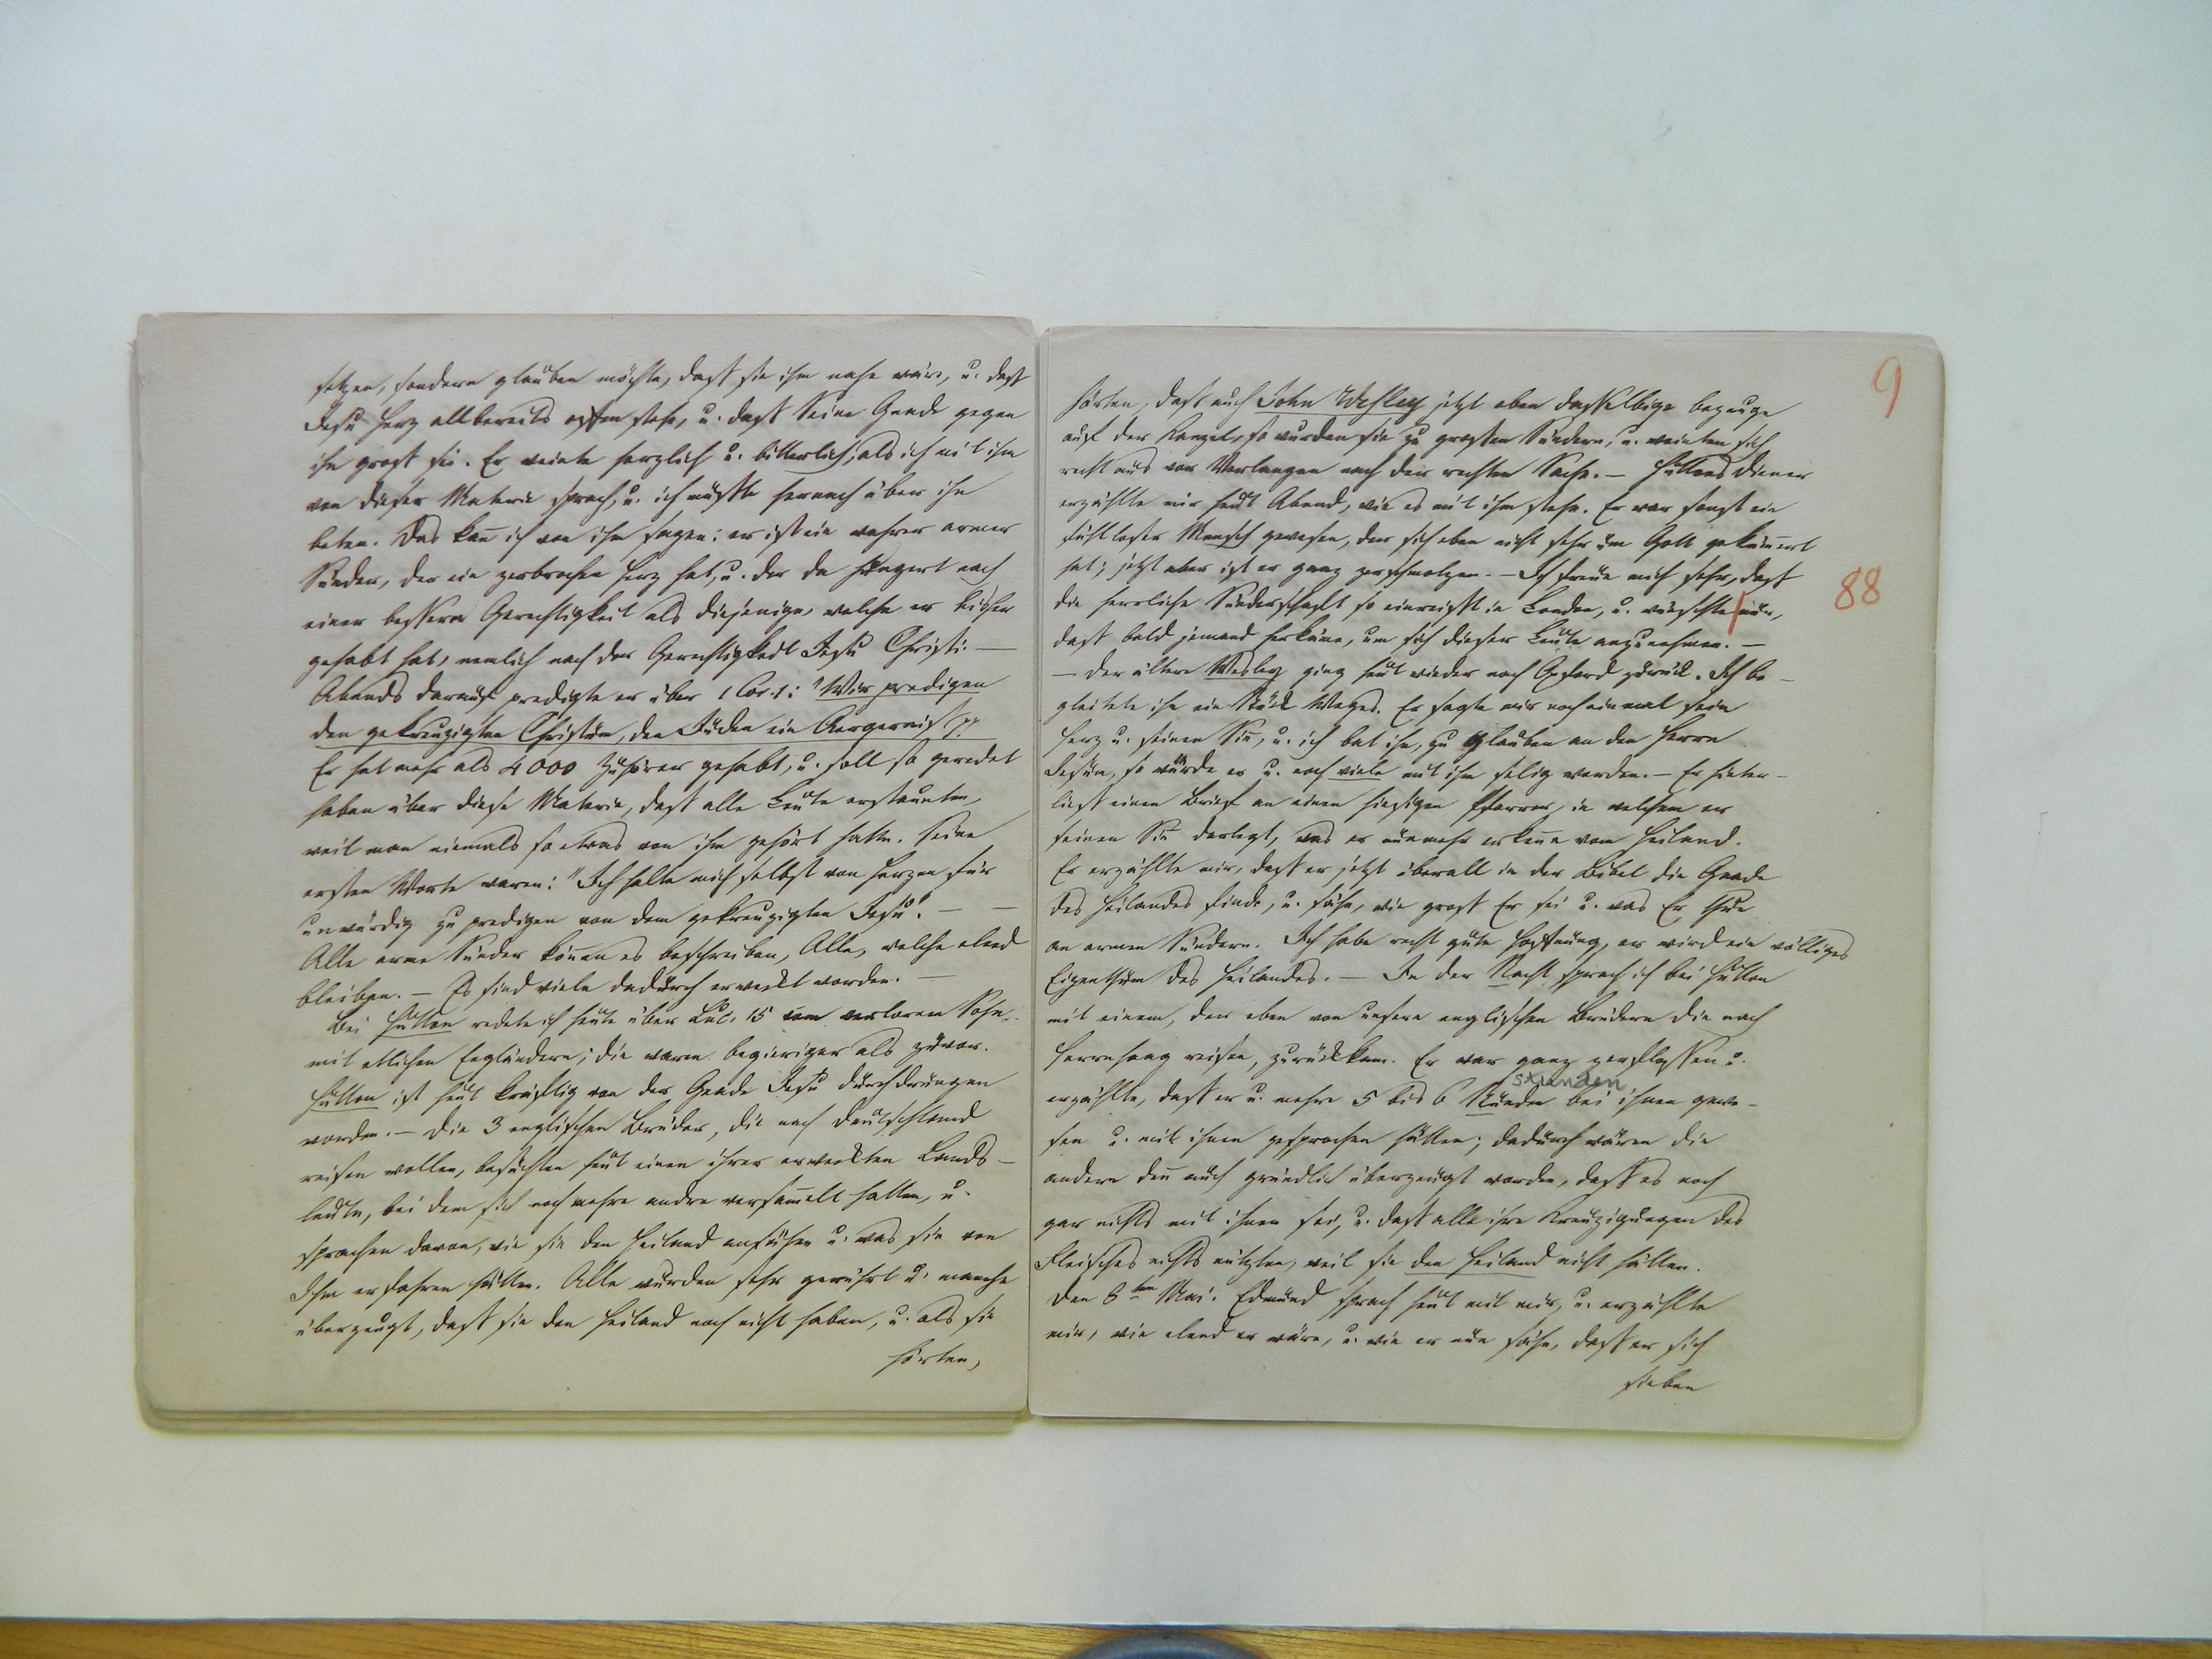 setzen, sondern glauben möchte, dass sie ihm nahe wäre, u. dass
Jesu Herz allbereits offen stehe, u. dass Seine Gnade gegen
ihn gross sei. Er weinte herzlich u. bitterlich, als ich mit ihm
von dieser Materie sprach, u. ich musste hernach über ihn
beten. Das kan̄ ich von ihm sagen: er ist ein wahrer armer
Sünder, der ein zerbrochen Herz hat, u. der da hungert nach
einer bessern Gerechtigkeit als diejenige, welche er bisher
gehabt hat, nemlich nach der Gerechtigkeit Jesu Christi. —
Abends darauf predigte er über 1 Cor. 1: "Wir predigen
den gekreuzigten Christum, den Juden ein Aergerniss pp"
Er hat mehr als 4000 Zuhörer gehabt, u. soll so geredet
haben über diese Materie, dass alle Leute erstaunten,
weil man niemals so etwas von ihm gehört hatte. Seine
ersten Worte waren: "Ich halte mich selbst von Herzen für
unwürdig zu predigen von dem gekreuzigten Jesu". — —
Alle arme Sünder kön̄en es beschreiben, Alle, welche elend
bleiben. — Es sind viele dadurch erweckt worden. —
Bei Hutton redete ich heute über Luc. 15 vom verloren Sohn
mit etlichen Engländern; die waren begieriger als zuvor.
Hutton ist heut kräftig von der Gnade Jesu durchdrungen
worden. — Die 3 englischen Brüder, die nach Deutschland
reisen wollen, besuchten heut einen ihrer erweckten Lands-
leute, bei dem sich noch mehre andre versam̄elt hatten, u.
sprachen davon, wie sie den Heiland ansähen u. was sie von
Ihm erfahren hätten. Alle wurden sehr gerührt u. manche
überzeugt, dass sie den Heiland noch nicht haben, u. als sie
hörten,
9
hörten, dass auch John Wesley jetzt eben dasselbige bezeuge
auf der Kanzel, so wurden sie zu grossen Sündern, u. weinten sich
recht aus vor Verlangen nach der rechten Sache. — Huttons Diener
erzählte mir heut Abend, wie es mit ihm stehe. Er war sonst ein
fühlloser Mensch gewesen, der sich eben nicht sehr um Gott geküm̄ert
hat; jetzt aber ist er ganz zerschmolzen. — Ich freue mich sehr, dass
88
die herrliche Sünderschaft so einreisst in London, u. wünschte nur,
dass bald jemand herkäme, um sich dieser Leute anzunehmen. —
— Der ältere Wesley ging heut wieder nach Oxford zurück. Ich be-
gleitete ihn ein Stück Weges. Er sagte mir noch einmal sein
Herz u. seinen Sin̄, u. ich bat ihn, zu glauben an den Herrn
Jesum, so würde er u. noch viele mit ihm selig werden. — Er hinter-
liess einen Brief an einen hiesigen Pfarrer, in welchem er
seinen Sin̄ darlegt, was er nunmehr erken̄e vom Heiland.
Er erzählte mir, dass er jetzt überall in der Bibel die Gnade
des Heilandes finde, u. sähe, wie gross Er sei u. was Er thue
an armen Sündern. Ich habe recht gute Hoffnung, er wird ein völliges
Eigenthum des Heilandes. — In der Nacht sprach ich bei Hutton
mit einem, der eben von unsern englischen Brüdern die nach
Herrnhaag reisen, zurückkam. Er war ganz zerflossen u.
stunden
erzählte, dass er u. mehre 5 bis 6 Stunden bei ihnen gewe-
sen u. mit ihnen gesprochen hätten; dadurch wären die
andern den̄ auch gründlich überzeugt worden, dass es noch
gar nichts mit ihnen sei, u. dass alle ihre Kreuzigungen des
Fleisches nichts nützten, weil sie den Heiland nicht hätten.
Den 6ten Mai. Edmund sprach heut mit mir, u. erzählte
mir, wie elend er wäre, u. wie er nun sähe, dass er sich
sieben